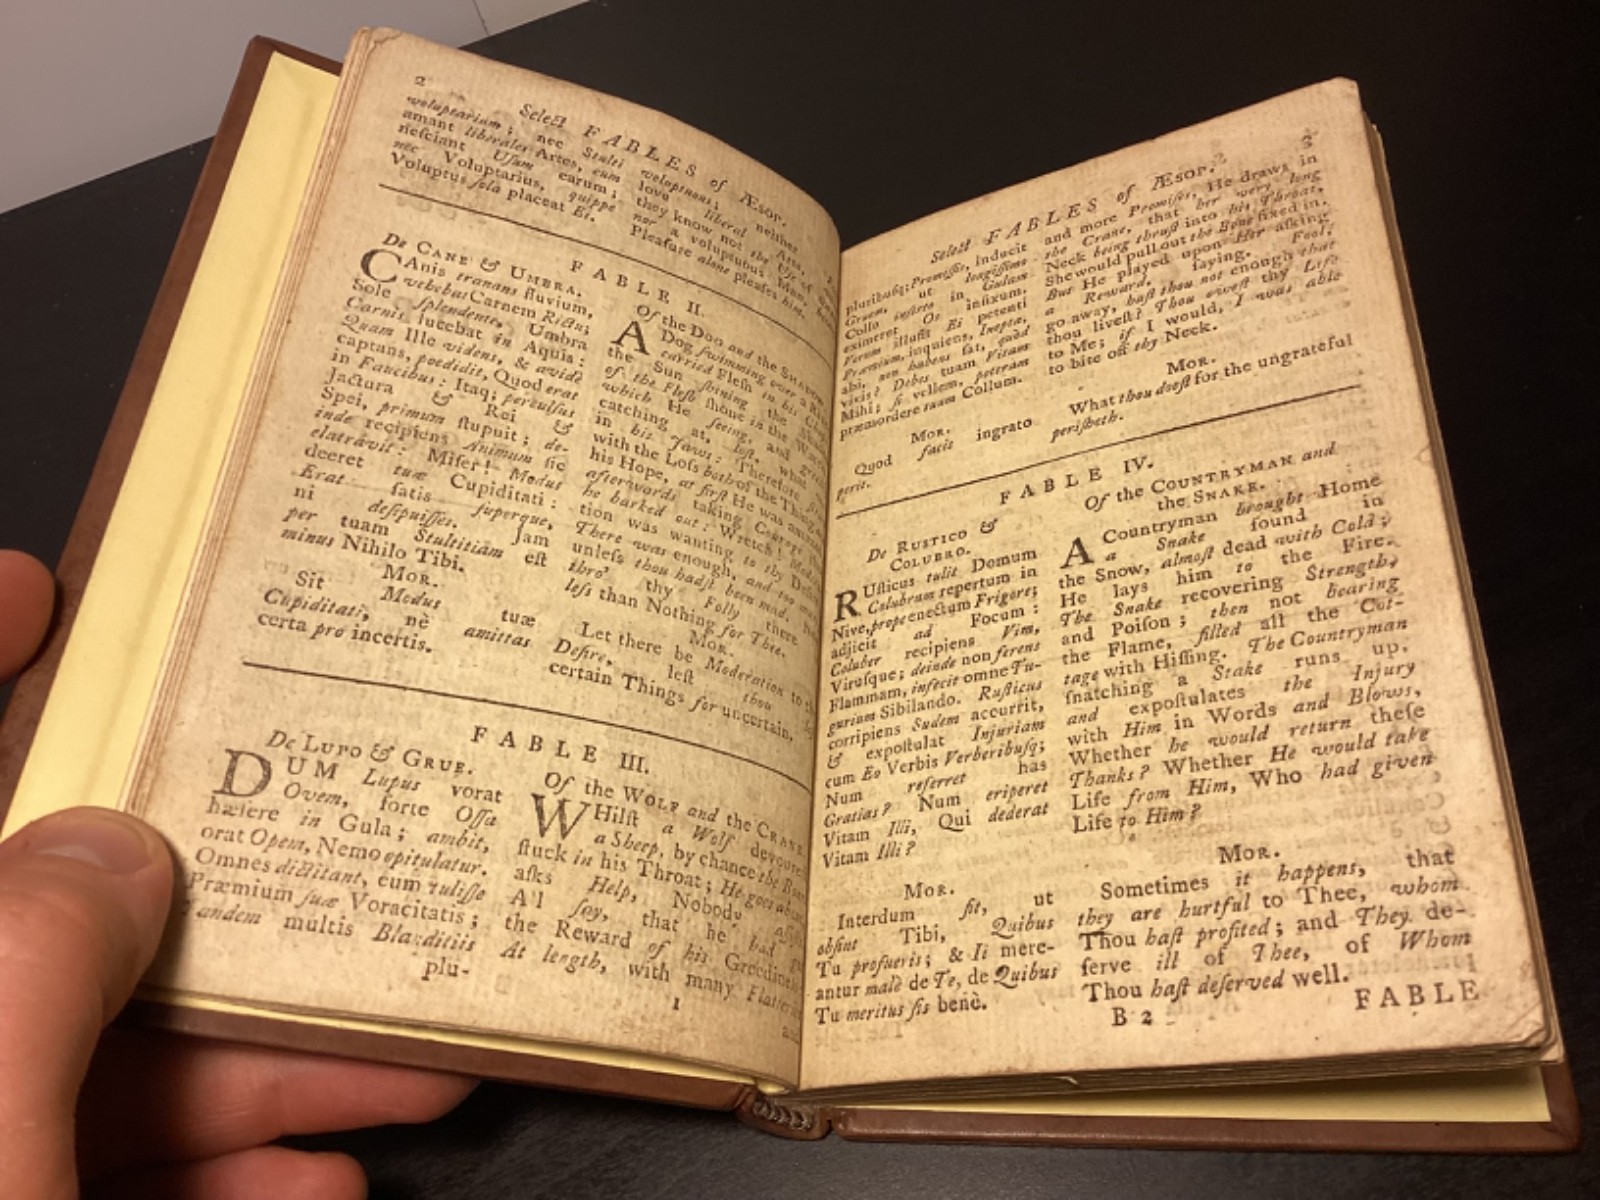 2
Select FABLES of Æsop.
voluptarium; nec Stulti
amant liberales Artes, cum
nesciant Usum earum;
nec Voluptarius, quippe
Voluptas sola placeat Ei.
voluptuous; neither
love liberal Arts,
they know not the Use of
nor a voluptuous Man,
Pleasure alone pleases him.
FABLE II.
De CANE & UMBRA.
CAnis tranans fluvium,
vehebat Carnem Rictu;
Sole splendente, Umbra
Carnis lucebat in Aquis:
Quam Ille videns, & avidè
captans, perdidit, Quod erat
in Faucibus: Itaq; perculsus
Jactura & Rei &
Spei, primum stupuit; de-
inde recipiens Animum sic
elatrâvit: Miser! Modus
deeret tuæ Cupiditati:
Erat satis superque,
ni desipuisses. Jam
per tuam Stultitiam est
minus Nihilo Tibi.
MOR.
Sit Modus tuæ
Cupiditati, nè amittas
certa pro incertis.
Of the DOG and the
A Dog swimming over a
carried Flesh in his
the Sun shining, the
of the Flesh shone in the
which He seeing, and
catching at, lost, what
in his Jaws: Therefore
with the Loss both of the Thing
his Hope, at first He was
afterwards taking Courage
he barked out: Wretch!
tion was wanting to thy
There was enough, and too
unless thou hadst been mad.
thro' thy Folly there
less than Nothing for Thee.
MOR.
Let there be Moderation to
Desire, lest thou
certain Things for uncertain.
FABLE III.
De LUPO & GRUE.
DUM Lupus vorat
Ovem, forte Ossa
hæsere in Gula; ambit,
orat Opem, Nemo opitulatur.
Omnes dictitant, eum tulisse
Præmium suæ Voracitatis;
Tandem multis Blanditiis
plu-
Of the WOLF and the CRANE.
WHilst a Wolf
a Sheep, by chance the
stuck in his Throat; He goes
asks Help, Nobody
All say, that he had
the Reward of his
At length, with many
1
3
Select FABLES of Æsop.
pluribusq; Promissis, inducit
Gruem, ut longissimo
Collo inserto in Gulam
eximeret Os infixum.
Verum illusit Ei petenti
Præmium, inquiens, Inepta,
abi, non habens sat, quòd
vivis? Debes tuam Vitam
Mihi; si vellem, poteram
præmordere tuum Collum.
MOR.
Quod facis ingrato
perit.
and more Promises, He draws in
the Crane, that her very long
Neck being thrust into his Throat,
She would pull out the Bone fixed in.
But He played upon Her asking
a Reward, saying, Fool,
go away, hast thou not enough that
thou livest? Thou owest thy Life
to Me; if I would, I was able
to bite off thy Neck.
MOR.
What thou doest for the ungrateful
perisheth.
FABLE IV.
De RUSTICO &
COLUBRO.
RUsticus tulit Domum
Colubrum repertum in
Nive, prope enectum Frigore;
adjicit ad Focum:
Coluber recipiens Vim,
Virusque; deinde non ferens
Flammam, infecit omne Tu-
gurium Sibilando. Rusticus
corripiens Sudem accurrit,
& expostulat Injuriam
cum Eo Verbis Verberibusq;
Num referret has
Gratias? Num eriperet
Vitam Illi, Qui dederat
Vitam Illi?
MOR.
Interdum fit, ut
obsint Tibi, Quibus
Tu profueris; & Ii mere-
antur malè de Te, de Quibus
Tu meritus sis benè.
Of the COUNTRYMAN and
the SNAKE.
A Countryman brought Home
a Snake found in
the Snow, almost dead with Cold;
He lays him to the Fire.
The Snake recovering Strength,
and Poison; then not bearing
the Flame, filled all the Cot-
tage with Hissing. The Countryman
snatching a Stake runs up,
and expostulates the Injury
with Him in Words and Blows,
Whether he would return these
Thanks? Whether He would take
Life from Him, Who had given
Life to Him?
MOR.
Sometimes it happens, that
they are hurtful to Thee, whom
Thou hast profited; and They de-
serve ill of Thee, of Whom
Thou hast deserved well.
B 2
FABLE